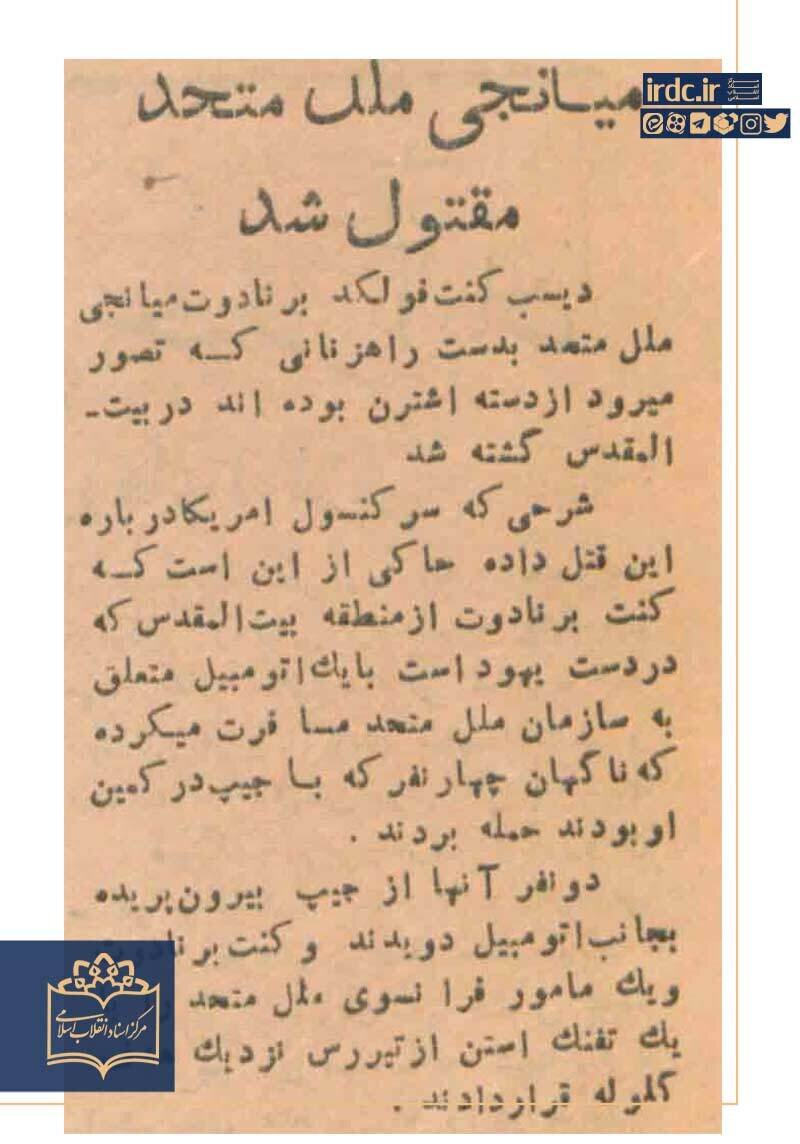 میانجی ملل متحد
مقتول شد
irdc.ir
مرکز اسناد انقلاب اسلامی
دیسب کنت فولکد برنادوت میانجی
ملل متحد بدست راهزنانی کـه تصور
میرود ازدسته اشترن بوده اند دربیت-
المقدس گشته شد
شرحی که سرکنسول امریکادرباره
این قتل داده حاکی از این است کـه
کنت برنادوت ازمنطقه بیت‌المقدس که
دردست یهوداست بایك اتومبیل متعلق
به سازمان ملل متحد مسافرت میکرده
که ناگهان چهارنفر که بـا جیپ درکمین
اوبودند حمله بردند .
دونفر آنها از جیپ بیرون‌پریده
بجانب اتومبیل دویدند وکنت برنادوت
ویك مامور فرانسوی ملل متحد را
یك تفنك استن ازتیررس نزدیك
گلوله قراردادند .
مرکز اسناد انقلاب اسلامی